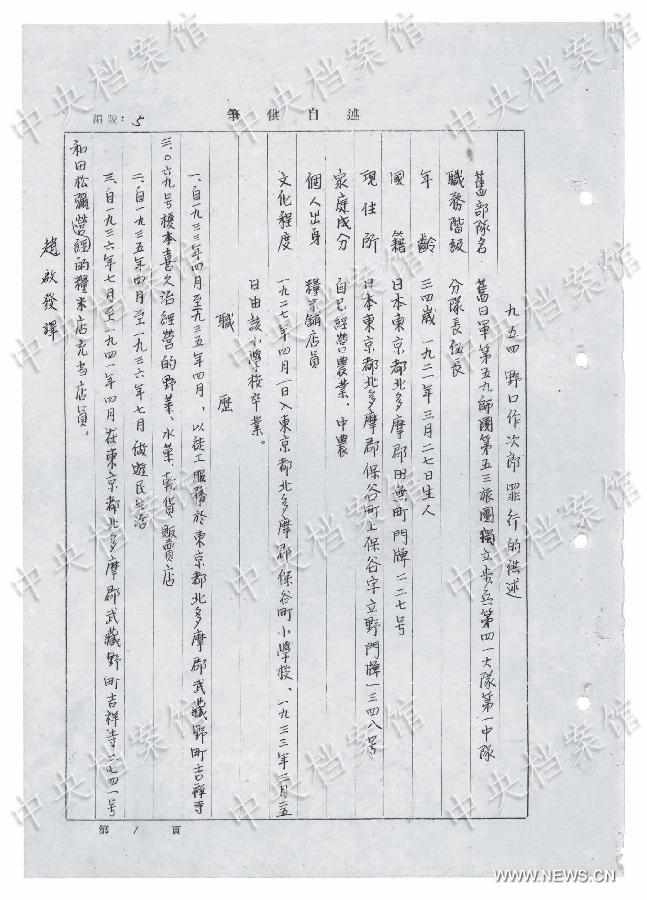 述自供筆
編號：5
九五四 野口作次郎 罪行的供述
舊部隊名 舊日軍第五九師團第五三旅團獨立步兵第四一大隊第一中隊
職務階級 分隊長 伍長
年齡 三四歲 一九二一年三月二七日生人
國籍 日本東京都北多摩郡田無町門牌一二七号
現住所 日本東京都北多摩郡保谷町上保谷字立野門牌一三四八号
家庭成分 自己經营農業、中農
個人出身 糧米舖店員
文化程度 一九二七年四月一日入東京都北多摩郡保谷町小學校、一九三三年三月二五
日由該小學校卒業。
職歷
一、自一九三三年四月至一九三五年四月，以徒工服務於東京都北多摩郡武藏野町吉祥寺
三〇六九号榎本喜久治經营的野菜、水菓、乾貨販賣店
二、自一九三五年四月至一九三六年七月做遊民生活
三、自一九三六年七月至一九四一年四月在東京都北多摩郡武藏野町吉祥寺二七四一号
和田松彌营經的糧米店充当店員。
趙啟發譯
第1頁
中央档案馆
中央档案馆
中央档案馆
中央档案馆
中央档案馆
中央档案馆
中央档案馆
中央档案馆
WWW.NEWS.CN